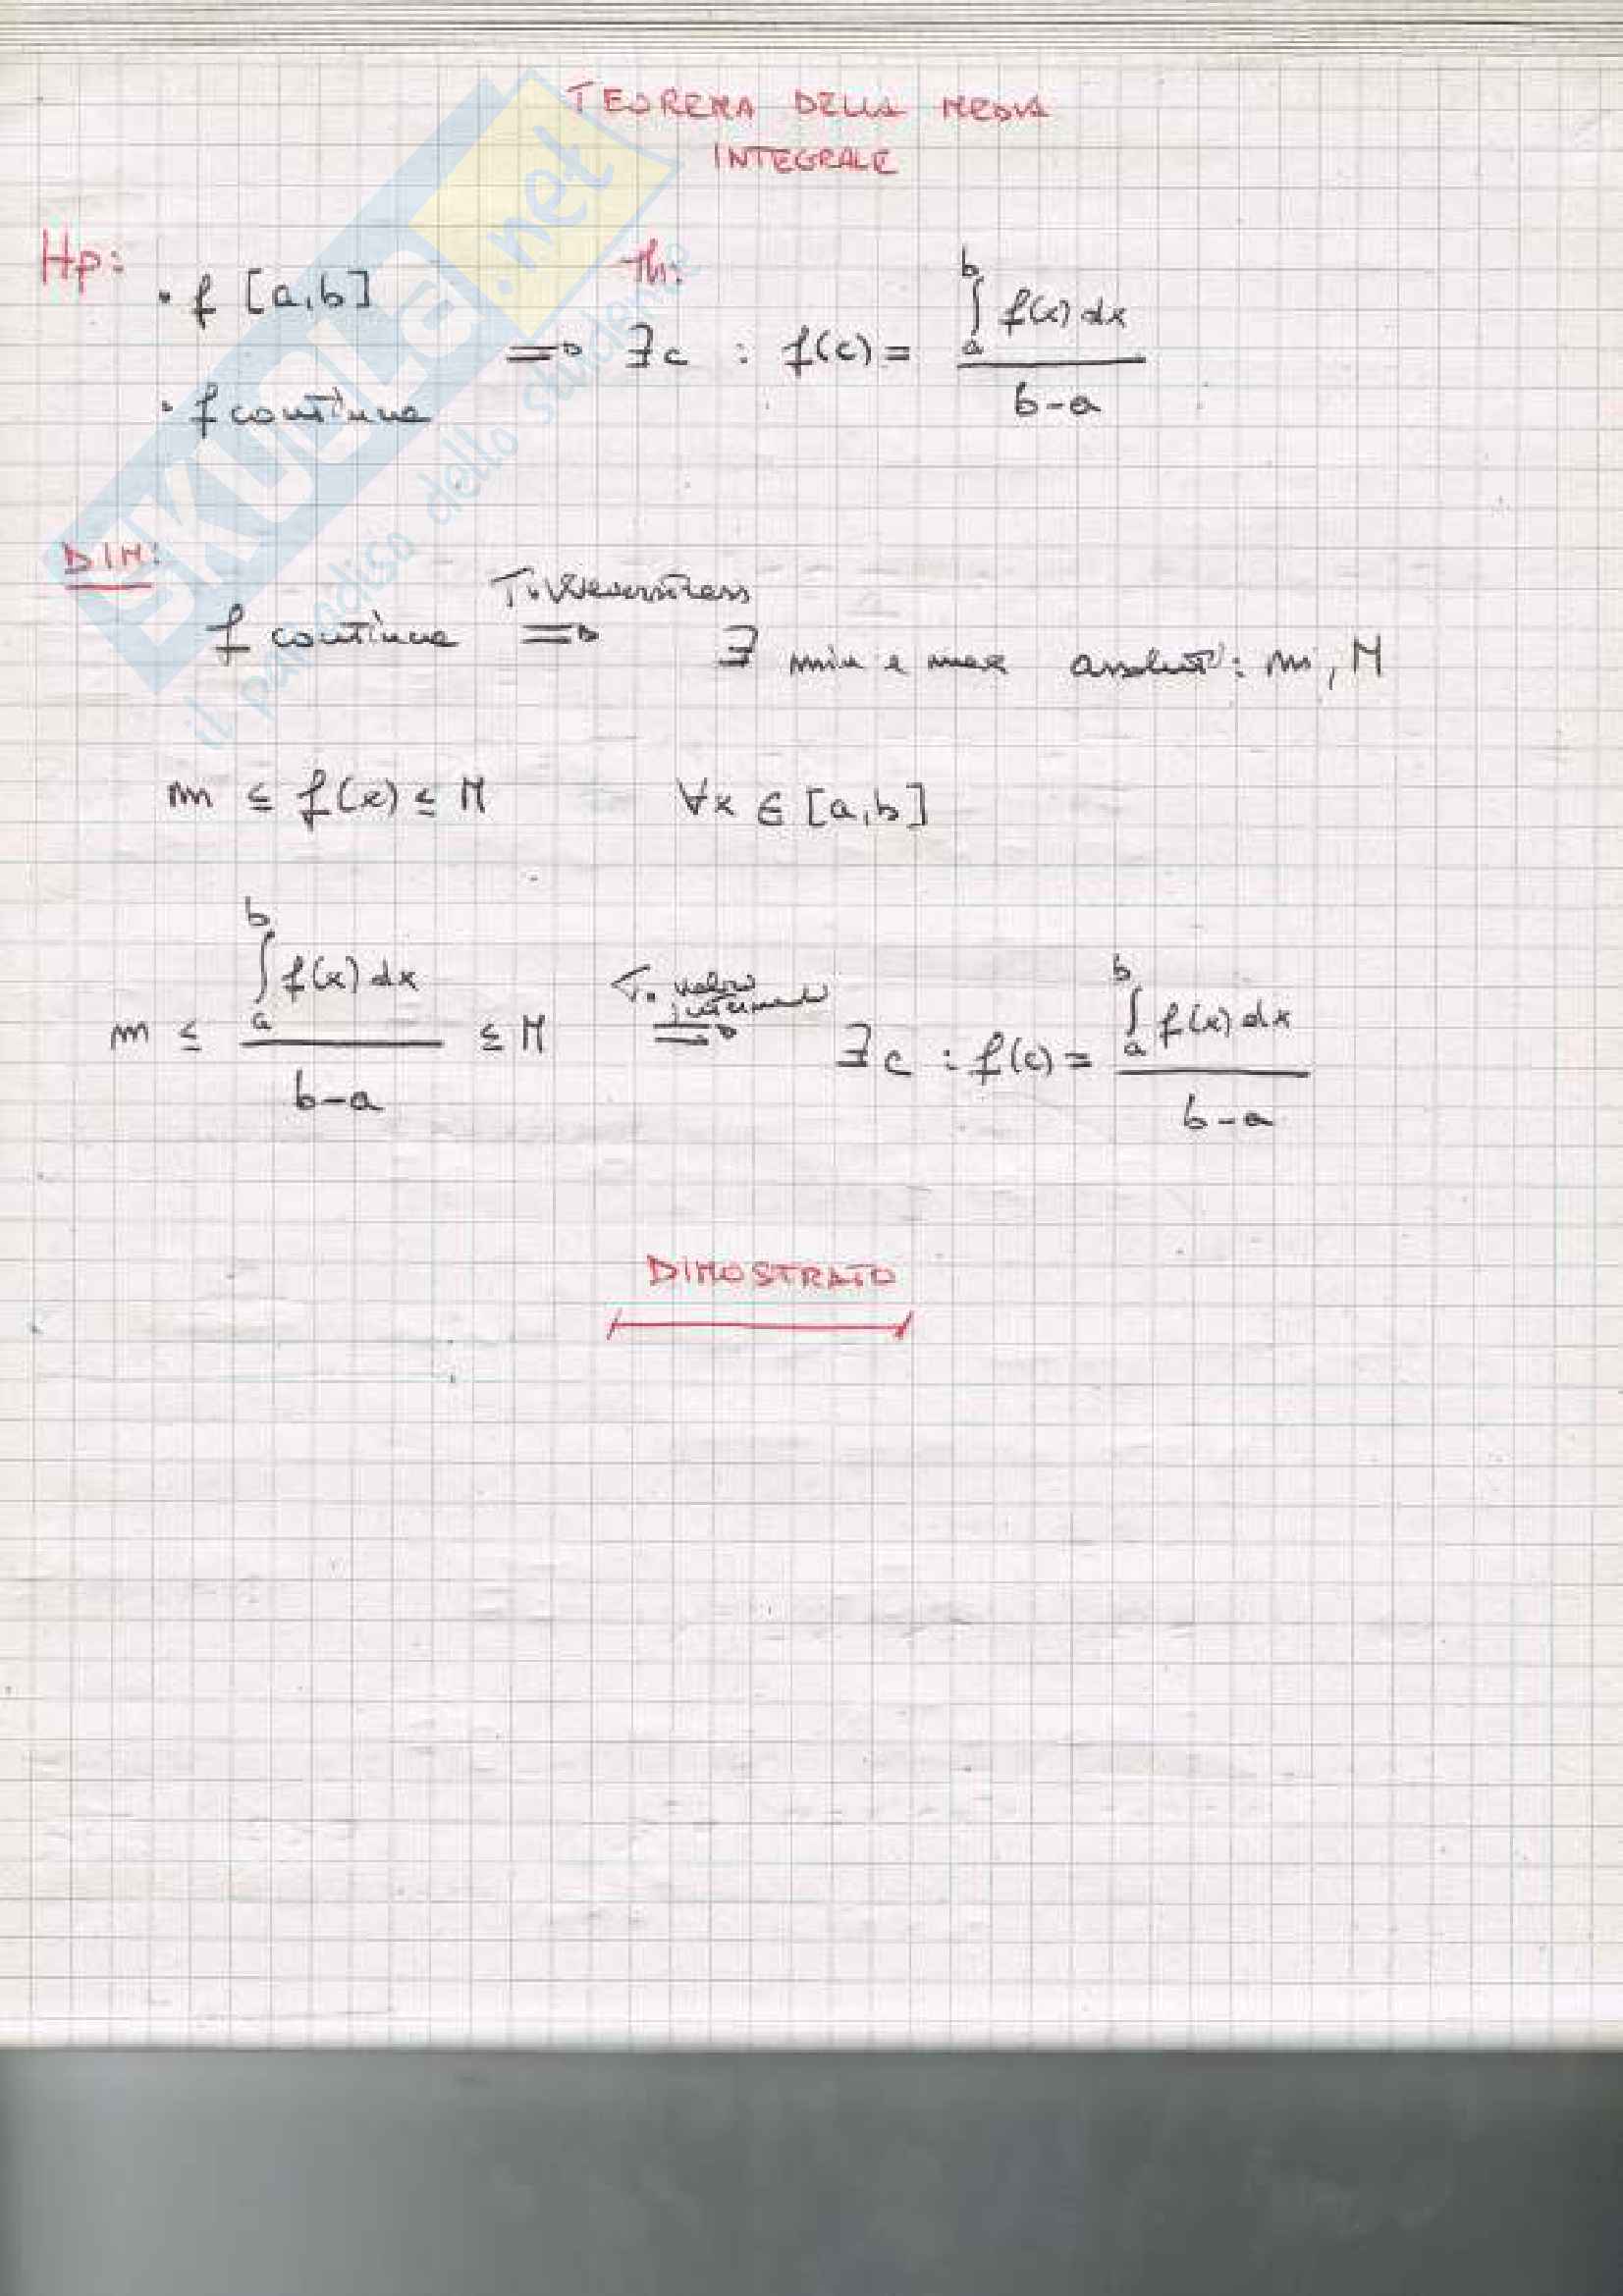 TEOREMA DELLA MEDIA
INTEGRALE
Hp:
Th:
• f [a,b]
• f continua
⟹ ∃ c : f(c) = ∫_a^b f(x) dx / b-a
DIM:
f continua ⟹ (T. Weierstrass) ∃ min e max assoluti: m, M
m ≤ f(x) ≤ M ∀x ∈ [a,b]
m ≤ ∫_a^b f(x) dx / b-a ≤ M ⟹ (T. valori intermedi) ∃ c : f(c) = ∫_a^b f(x) dx / b-a
DIMOSTRATO
SKUOLA.net
il paradiso dello studente